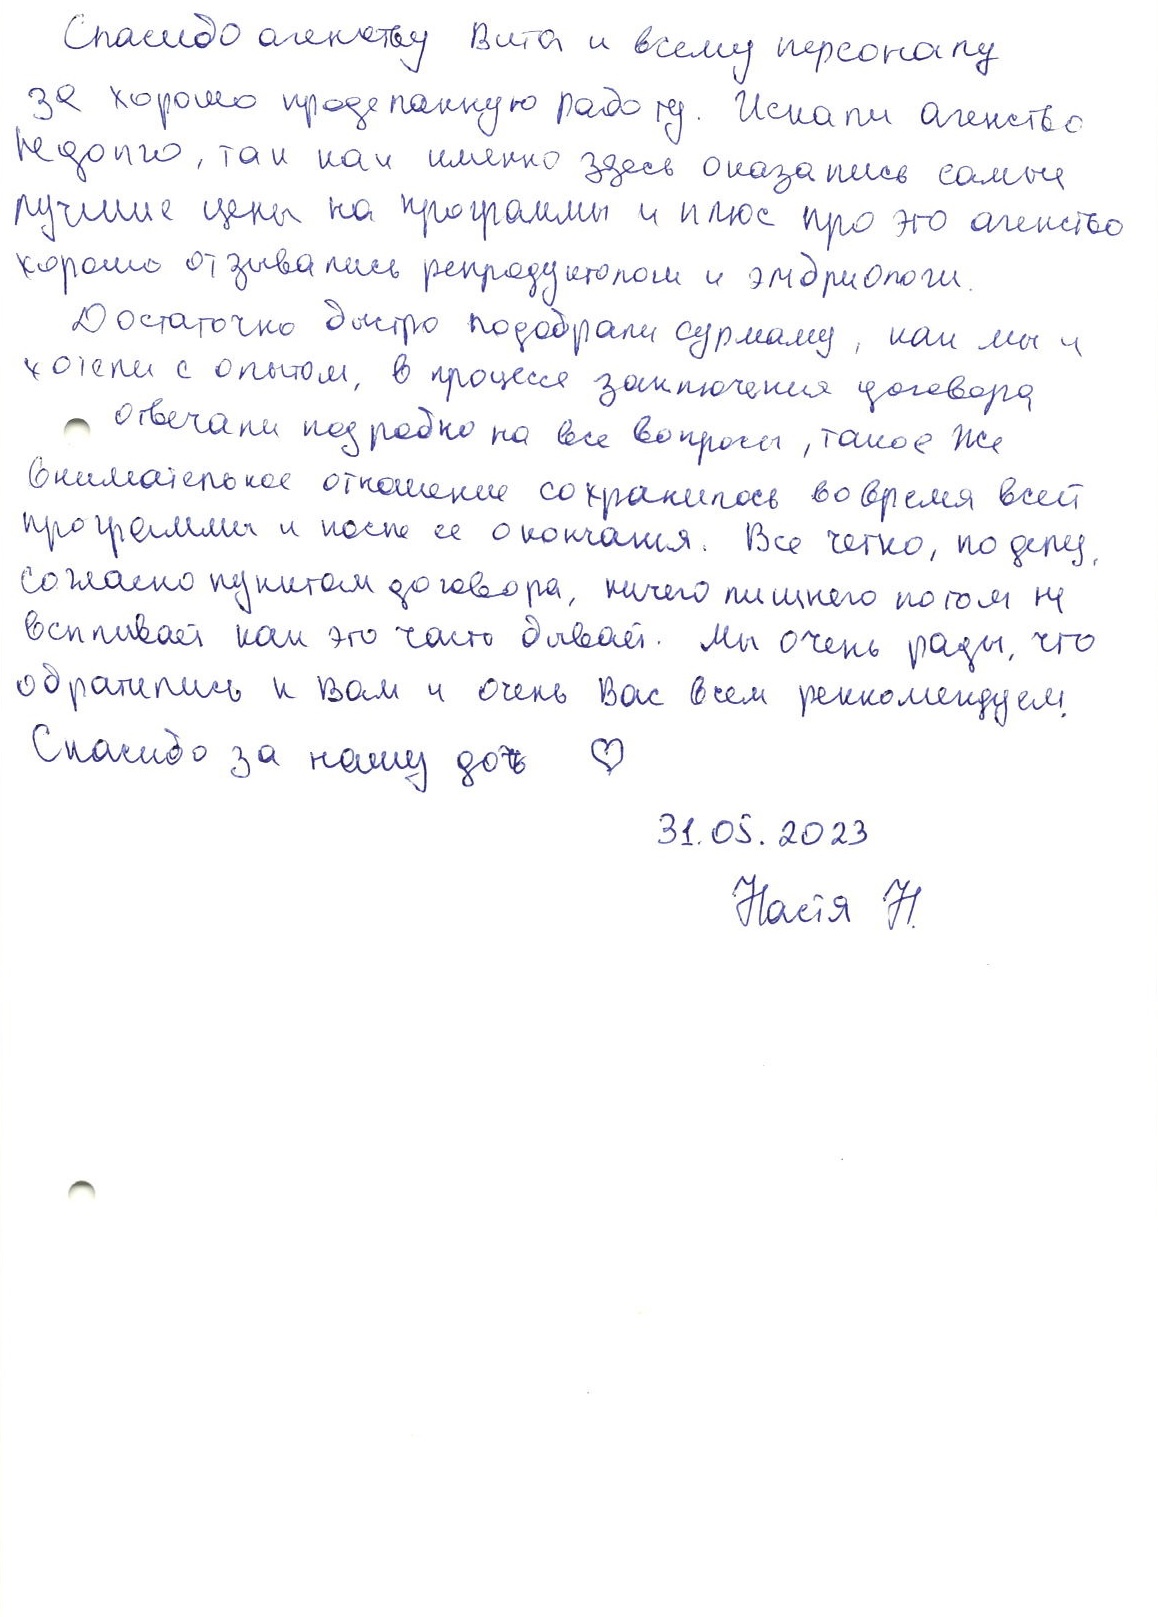 Спасибо агенству Вита и всему персоналу
за хорошо проделанную работу. Искали агенство
недолго, так как именно здесь оказались самые
лучшие цены на программы и плюс про это агенство
хорошо отзывались репродуктологи и эмбриологи.
Достаточно быстро подобрали сурмаму, как мы и
хотели с опытом, в процессе заключения договора
отвечали подробно на все вопросы, такое же
внимательное отношение сохранилось во время всей
программы и после ее окончания. Все четко, по делу,
согласно пунктам договора, ничего лишнего потом не
всплывает как это часто бывает. Мы очень рады, что
обратились к Вам и очень Вас всем реккомендуем!
Спасибо за нашу дочь ♡
31.05.2023
Настя Н.